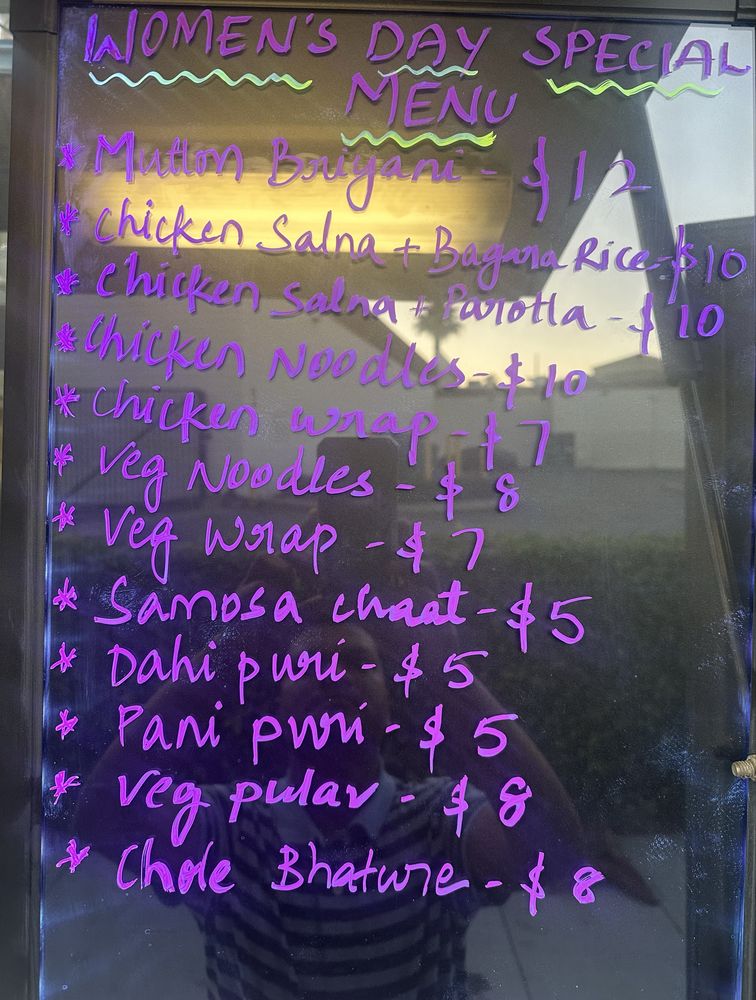 WOMEN'S DAY SPECIAL
MENU
* Mutton Briyani - $12
* Chicken Salna + Bagara Rice - $10
* Chicken Salna + Parotta - $10
* Chicken Noodles - $10
* Chicken wrap - $7
* Veg Noodles - $8
* Veg Wrap - $7
* Samosa chaat - $5
* Dahi puri - $5
* Pani puri - $5
* Veg pulav - $8
* Chole Bhature - $8